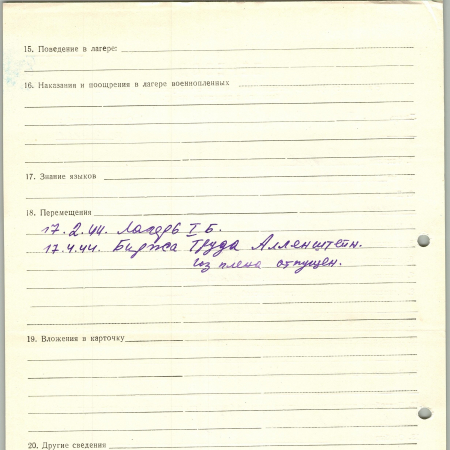 15. Поведение в лагере:
16. Наказания и поощрения в лагере военнопленных
17. Знание языков
18. Перемещения
17.2.44. Лагерь I Б.
17.4.44. Биржа Труда Алленштейн.
из плена отпущен.
19. Вложения в карточку
20. Другие сведения